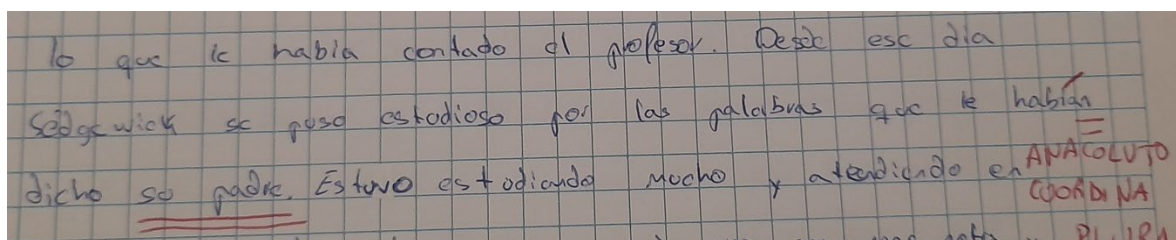 lo que le habia contado el profesor. Desde ese dia
Sedgewick se puso estudioso por las palabras que le habían
dicho su padre. Estuvo estudiando mucho y atendiendo en
ANACOLUTO
COORDINA